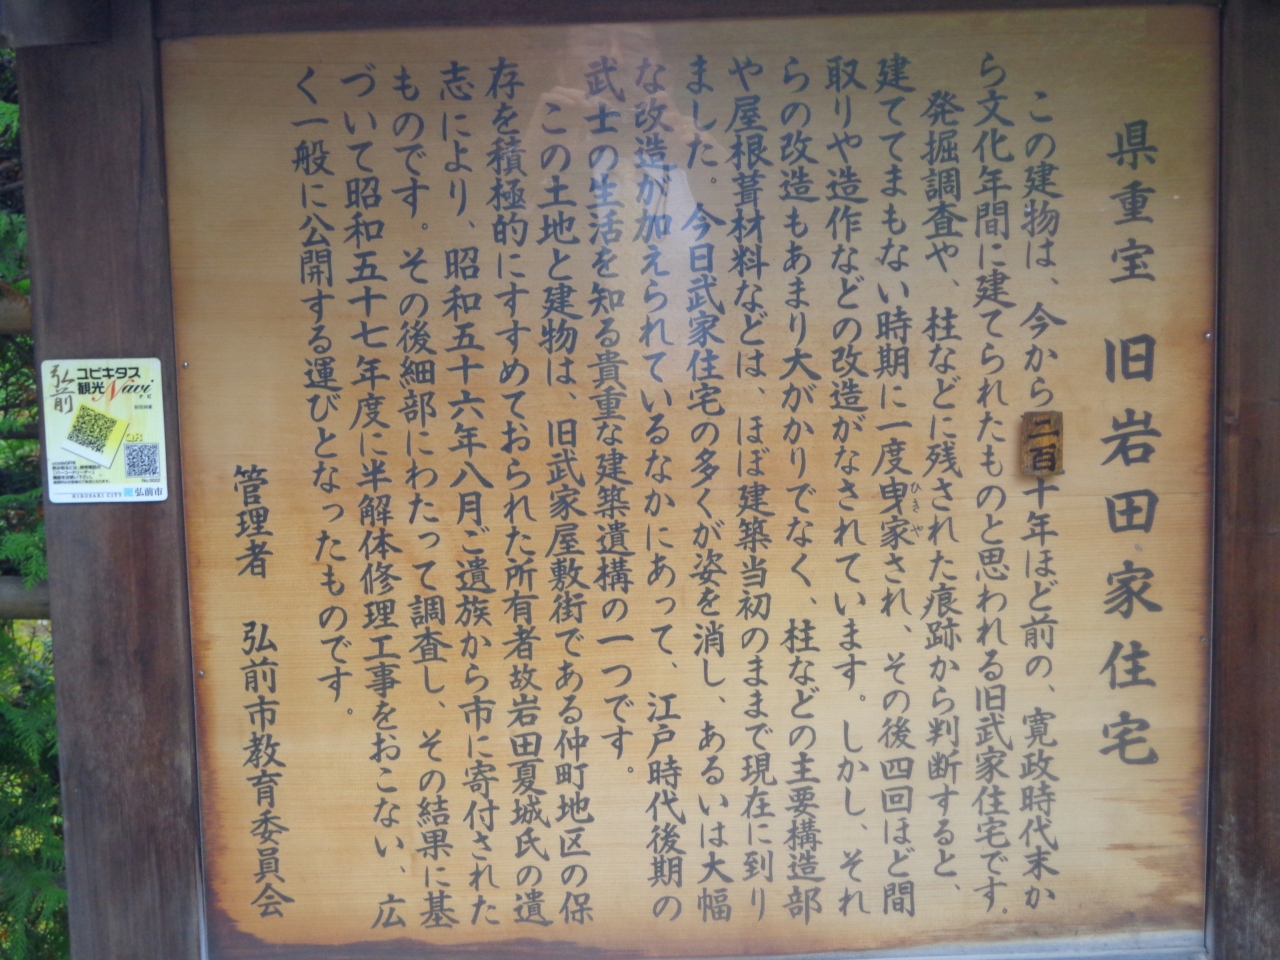 県重宝　旧岩田家住宅
この建物は、今から二百十年ほど前の、寛政時代末か
ら文化年間に建てられたものと思われる旧武家住宅です。
発掘調査や、柱などに残された痕跡から判断すると、
建ててまもない時期に一度曳家され、その後四回ほど間
ひきや
取りや造作などの改造がなされています。しかし、それ
らの改造もあまり大がかりでなく、柱などの主要構造部
や屋根葺材料などは、ほぼ建築当初のままで現在に到り
ました。今日武家住宅の多くが姿を消し、あるいは大幅
な改造が加えられているなかにあって、江戸時代後期の
武士の生活を知る貴重な建築遺構の一つです。
この土地と建物は、旧武家屋敷街である仲町地区の保
存を積極的にすすめておられた所有者故岩田夏城氏の遺
志により、昭和五十六年八月ご遺族から市に寄付された
ものです。その後細部にわたって調査し、その結果に基
づいて昭和五十七年度に半解体修理工事をおこない、広
く一般に公開する運びとなったものです。
管理者　弘前市教育委員会
弘前
ユビキタス
観光Navi
ナビ
HIROSAKI CITY 弘前市